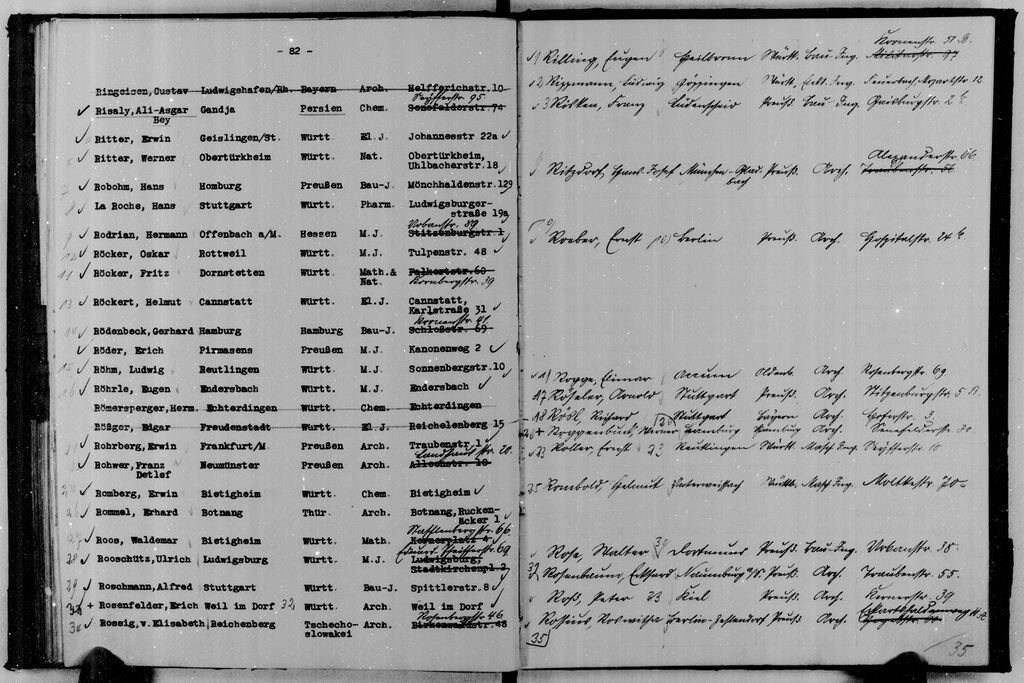 - 82 -
Ringeisen, Gustav Ludwigshafen/Rh. Bayern Arch. Helfferichstr.10
Seyfferstr. 95
Risaly, Ali-Asgar Gandja Persien Chem. Senefelderstr 74
Bey
Ritter, Erwin Geislingen/St. Württ. El.J. Johannesstr 22a
Ritter, Werner Obertürkheim Württ. Nat. Obertürkheim,
Uhlbacherstr.18
Robohm, Hans Homburg Preußen Bau-J. Mönchhaldenstr.129
8 La Roche, Hans Stuttgart Württ. Pharm. Ludwigsburger-
straße 19a
Urbanstr. 89
9 Rodrian, Hermann Offenbach a/M. Hessen M.J. Stitzenburgstr 1
12 Röcker, Oskar Rottweil Württ. M.J. Tulpenstr. 48
11 Röcker, Fritz Dornstetten Württ. Math.& Falkertstr.60
Nat. Kornbergstr. 39
13 Röckert, Helmut Cannstatt Württ. El.J. Cannstatt,
Karlstraße 31
Kronenstr. 41.
14 Rödenbeck, Gerhard Hamburg Hamburg Bau-J. Schloßstr. 69
Röder, Erich Pirmasens Preußen M.J. Kanonenweg 2
15 Röhm, Ludwig Reutlingen Württ. M.J. Sonnenbergstr.10
16 Röhrle, Eugen Endersbach Württ. M.J. Endersbach
Römersperger, Herm. Echterdingen Württ. Chem. Echterdingen
Rößger, Edgar Freudenstadt Württ. El.J. Reichelenberg 15
Rohrberg, Erwin Frankfurt/M Preußen Arch. Traubenstr.1
Landhausstr. 20.
Rohwer, Franz Neumünster Preußen Arch. Alleenstr 18
Detlef
Romberg, Erwin Bietigheim Württ. Chem. Bietigheim
26 Rommel, Erhard Botnang Thür. Arch. Botnang, Rucken-
äcker 1
Stafflenbergstr. 66
27 Roos, Waldemar Bietigheim Württ. Math. Kernerplatz 4
Eduard Pfeifferstr. 69
28 Rooschütz, Ulrich Ludwigsburg Württ. M.J. Ludwigsburg,
Stadtkirchenpl.2
29 Roschmann, Alfred Stuttgart Württ. Bau-J. Spittlerstr.8
+ Rosenfelder, Erich Weil im Dorf 32 Württ. Arch. Weil im Dorf
Rosenbergstr. 46
30 Rossig, v. Elisabeth, Reichenberg Tschecho- Arch. Birkenwaldstr.48
slowakei
Kronenstr. 51 B.
1) Rilling, Eugen Heilbronn Württ. Bau Ing.
2 Rippmann, Ludwig Göppingen Württ. Elt. Ing. Feuerbach-Mozartstr. 12
3 Ritken, Franz Lüdenscheid Preuß Bau Ing.
Alexanderstr. 66.
Ritzdorf, Hans Josef München-Glad- Preuß. Arch. Traubenstr. 56
bach
Roeber, Ernst 10) Berlin Preuß. Arch. Hospitalstr. 24 b.
Rogge, Eimar Accum Oldenb. Arch. Rosenbergstr 69.
17 Röseler, Arnold Stuttgart Württ Arch. Stitzenburgstr. 5 B.
18 Rösl, Richard Stuttgart Bayern Arch. Hoferstr. 3.
+ Roggenbuck, Werner Hamburg Hamburg Arch. Senefelderstr. 30
23 Roller, Ernst 23 Reutlingen Württ Masch Ing. Seyfferstr. 18
25 Rombold, Helmut Unterweissach Württb. Masch Ing. Moltkestr. 70
Rose, Walter Dortmund Preuß. Bau Ing. Urbanstr. 38.
Rosenbaum, Eckhard Naumburg a/S. Preuß. Arch. Traubenstr. 55.
Roß, Peter 33 Kiel Preuß. Arch. Kernerstr. 39
Rossius, Roswitha Berlin-Zehlendorf Preuß Arch. Eckartshaldenweg
35
35